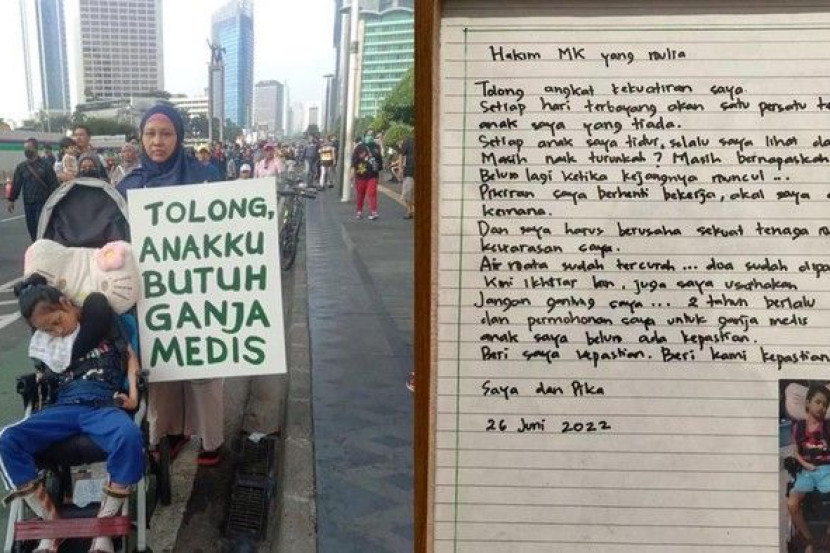 TOLONG,
ANAKKU
BUTUH
GANJA
MEDIS
Hakim MK yang mulia
Tolong angkat kekuatiran saya
Setiap hari terbayang akan satu persatu
anak saya yang tiada.
Setiap anak saya tidur, selalu saya lihat
Masih naik turunkah? Masih bernapaskah
Belum lagi ketika kejangnya muncul...
Pikiran saya berhenti bekerja, akal saya
kemana.
Dan saya harus berusaha sekuat tenaga
kewarasan saya.
Air mata sudah tercurah... doa sudah
Kini ikhtiar lan, juga saya usahakan
Jangan gantung saya... 2 tahun berlalu
dan permohonan saya untuk ganja medis
anak saya belum ada kepastian.
Beri saya kepastian. Beri kami kepastian
Saya dan Pika
26 Juni 2022